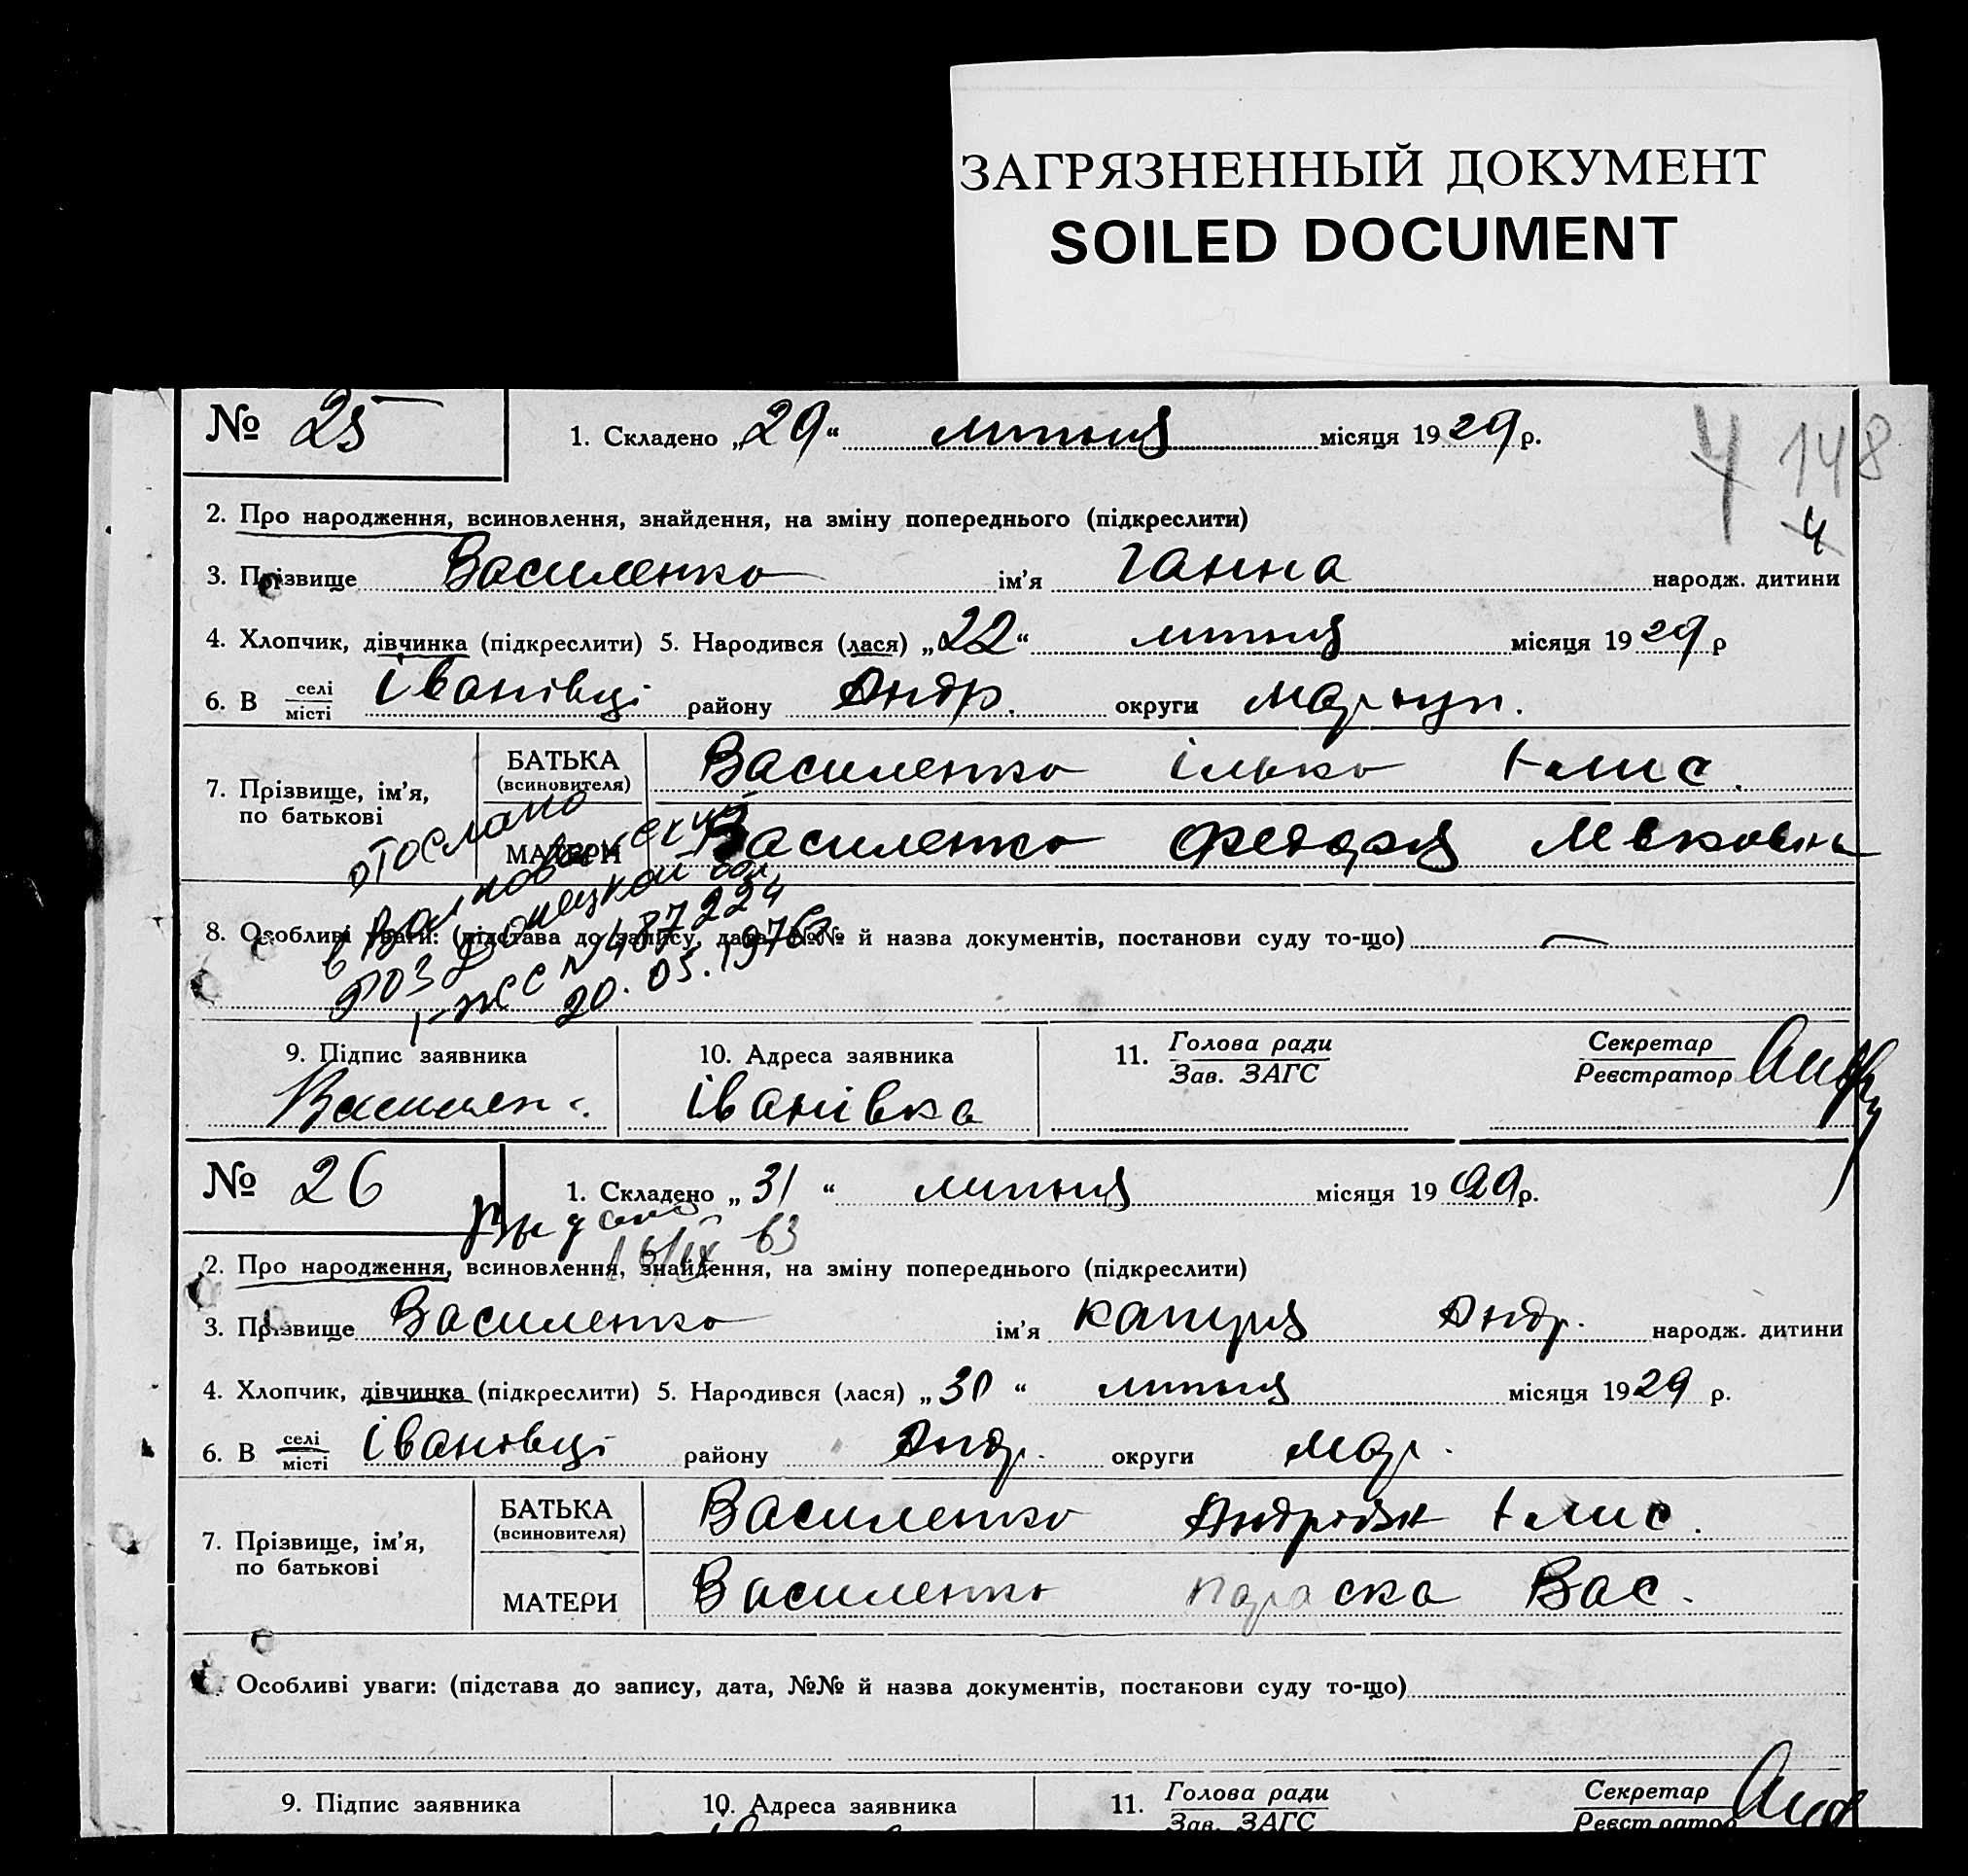 ЗАГРЯЗНЕННЫЙ ДОКУМЕНТ
SOILED DOCUMENT
№ 25
1. Складено „29“ липня місяця 1929 р.
4 148
4
2. Про народження, всиновлення, знайдення, на зміну попереднього (підкреслити)
3. Прізвище Василенко ім'я Ганна народж. дитини
4. Хлопчик, дівчинка (підкреслити) 5. Народився (лася) „22“ липня місяця 1929 р
6. В селі/місті Іванівці району Андр. округи Маріуп.
7. Прізвище, ім'я, по батькові
БАТЬКА (всиновителя) Василенко Ілько
МАТЕРИ Василенко Федора
отослано
в
РОЗ Донецкой обл.
N 487224
20.05.1976
8. Особливі уваги: (підстава до запису, дата, №№ й назва документів, постанови суду то-що) —
9. Підпис заявника
10. Адреса заявника
11. Голова ради / Зав. ЗАГС
Секретар / Реєстратор
Василен Іванівка
№ 26
1. Складено „31“ липня місяця 1929 р.
Выдано
16/IX 63
2. Про народження, всиновлення, знайдення, на зміну попереднього (підкреслити)
3. Прізвище Василенко ім'я Андр. народж. дитини
4. Хлопчик, дівчинка (підкреслити) 5. Народився (лася) „30“ липня місяця 1929 р.
6. В селі/місті Іванівці району Андр. округи Мар.
7. Прізвище, ім'я, по батькові
БАТЬКА (всиновителя) Василенко
МАТЕРИ Василенко Параска Вас.
Особливі уваги: (підстава до запису, дата, №№ й назва документів, постанови суду то-що)
9. Підпис заявника
10. Адреса заявника
11. Голова ради / Зав. ЗАГС
Секретар / Реєстратор